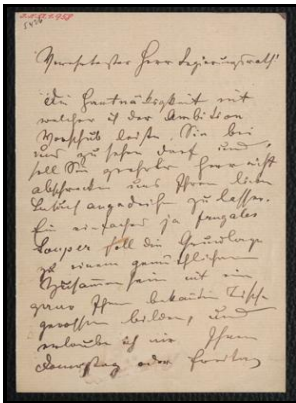 Verehrtester Herr Regierungsrath!
Die Hartnäckigkeit mit
welcher ich der Ambition
Vorschub leiste, Sie bei
uns zu sehen darf und
soll Sie geehrter Herr nicht
abschrecken uns Ihren lieben
Besuch angedeihen zu lassen.
Ein einfaches ja frugales
Souper soll die Grundlage
zu einem gemüthlichen
Zusammensein mit ein
ganz Ihnen bekannten Tisch-
genossen bilden, und
erlaube ich mir Ihnen
Donnerstag oder Freitag